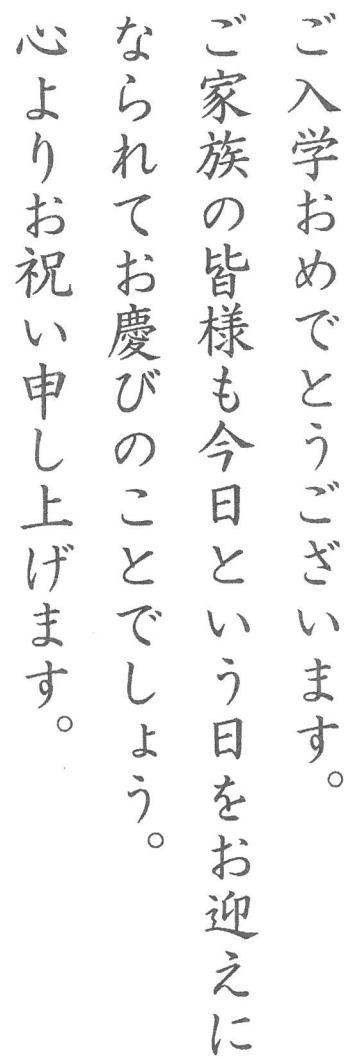 ご入学おめでとうございます。
ご家族の皆様も今日という日をお迎えに
なられてお慶びのことでしょう。
心よりお祝い申し上げます。